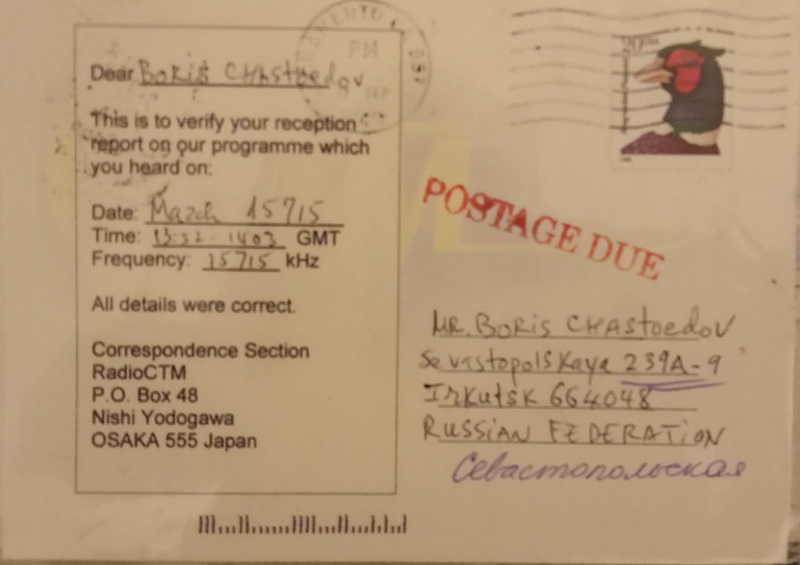 PM
20 USA
Dear Boris CHAStoedov
This is to verify your reception
report on our programme which
you heard on:
Date: March 15715
Time: 13:52 - 1403 GMT
Frequency: 15715 kHz
All details were correct.
Correspondence Section
RadioCTM
P.O. Box 48
Nishi Yodogawa
OSAKA 555 Japan
POSTAGE DUE
MR. BORis CHAStoedoV
SevastopolsKaya 239A-9
IrKutsK 664048
RUSSiAN FEDERATiON
Севастопольская